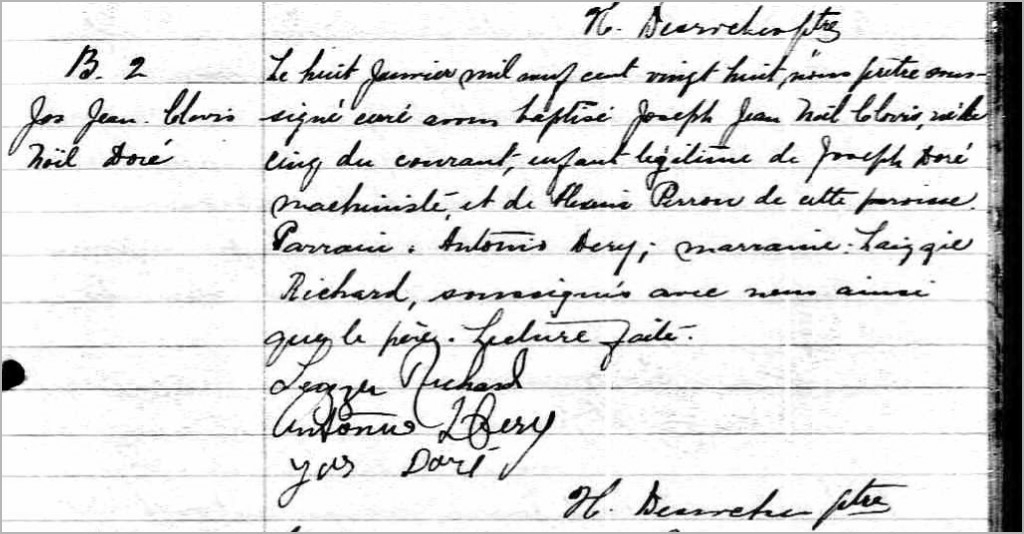 H. Desrochers ptre
B. 2
Jos Jean. Clovis
Noël Doré
Le huit Janvier mil neuf cent vingt huit, nous prêtre sous-
signé curé avons baptisé Joseph Jean Noël Clovis, né le
cinq du courant, enfant légitime de Joseph Doré
machiniste, et de Perron de cette paroisse.
Parrain : Antonio Dery; marraine : Laizzie
Richard, soussignés avec nous ainsi
que le père. Lecture faite.
Richard
Antonio Dery
Jos Doré
H. Desrochers ptre